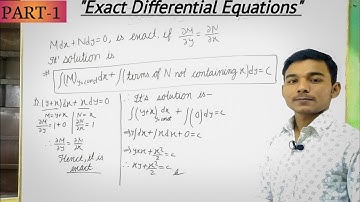 PART-1
"Exact Differential Equations"
Mdx+Ndy=0, is exact. if ∂M/∂y = ∂N/∂x
It's solution is
∫(M)y=const dx + ∫(terms of N not containing x)dy = c
(y+x)dx + xdy=0
M=y+x | N=x
∂M/∂y = 1+0 | ∂N/∂x = 1
∴ ∂M/∂y = ∂N/∂x
Hence, it is
exact
∴ It's solution is-
∫(y+x)dx y=const + ∫(0)dy=c
⇒y∫dx+∫xdx+0=c
⇒yx+x²/2=c
∴ xy+x²/2=c